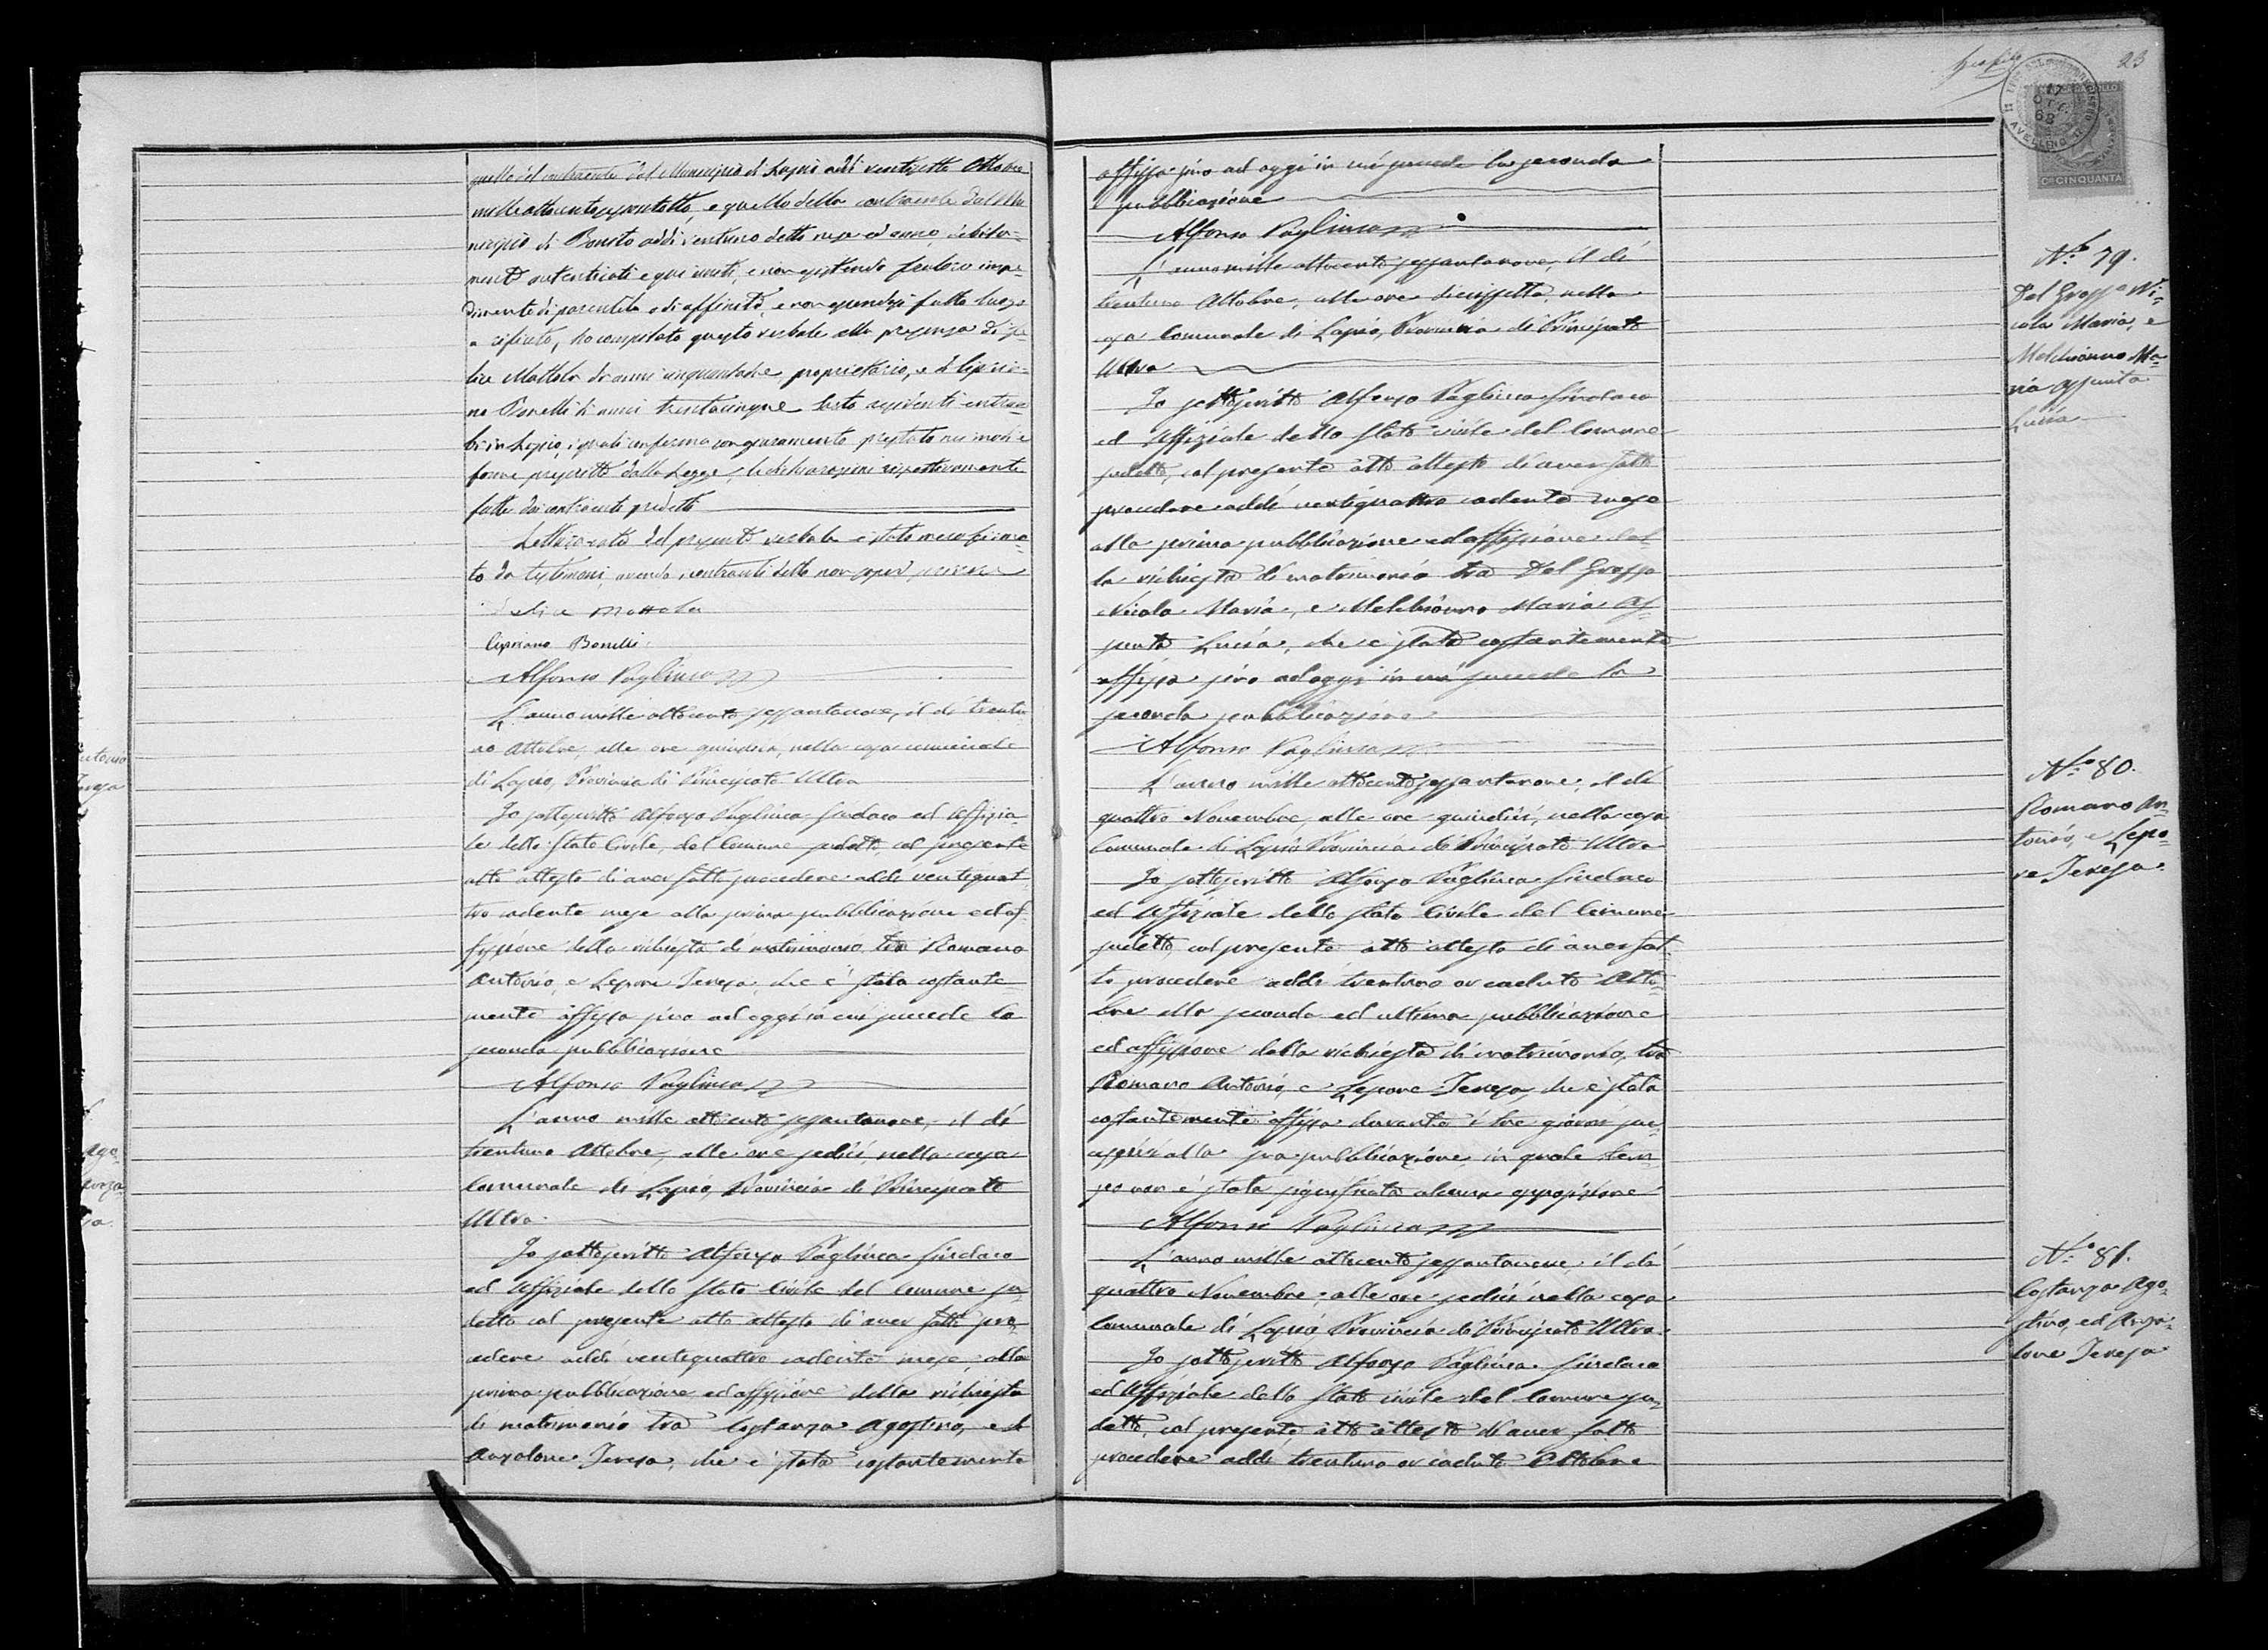 quello del contraente dal Municipio di Lapio addì ventisette Ottobre
milleottocentosessantotto, e quello della contraente dal Mu
nicipio di Bonito addì ventuno detto mese ed anno, debita=
mente autenticati e qui uniti, e non esistendo fra loro impe=
dimento di parentela o di affinità, e non essendosi fatto luogo
a rifiuto, ho compilato questo verbale alla presenza di Fe=
lice Mattola di anni cinquantatre, proprietario, e di Cipria=
no Bonelli di anni trentacinque sarto residenti entram
bi in Lapio, i quali conferma con giuramento prestato nei modi e
forme prescritte dalla Legge, le dichiarazioni rispettivamente
fatte dai contraenti predetti
Lettura data del presente verbale è stato meco firma=
to da testimoni, avendo i contraenti detto non saper scrivere
Felice Mattola
Cipriano Bonelli
Alfonso Pagliuca
L'anno mille ottocento sessantanove, il dì trentu
no Ottobre, alle ore quindici, nella casa comunale
di Lapio, Provincia di Principato Ultra
Io sottoscritto Alfonso Pagliuca Sindaco ed Uffizia=
le dello Stato Civile, del Comune sudetto, col presente
atto attesto di aver fatto procedere addì ventiquat
tro cadente mese alla prima pubblicazione ed af=
fissione della richiesta di matrimonio tra Romano
Antonio, e Lepore Teresa, che è stata costante
mente affissa sino ad oggi in cui succede la
seconda pubblicazione
Alfonso Pagliuca
L'anno mille ottocento sessantanove, il dì
trentuno Ottobre, alle ore sedici, nella casa
Comunale di Lapio, Provincia di Principato
Ultra
Io sottoscritto Alfonso Pagliuca Sindaco
ed Uffiziale dello Stato Civile del Comune su=
detto col presente atto attesto di aver fatto pro=
cedere addì ventiquattro cadente mese, alla
prima pubblicazione ed affissione della richiesta
di matrimonio tra Costanza Agostino, ed
Anzalone Teresa, che è stata costantemente
23
17
68
AVELLINO
Cmi CINQUANTA
affissa sino ad oggi in cui succede la seconda
pubblicazione
Alfonso Pagliuca
L'anno mille ottocento sessantanove, il dì
trentuno Ottobre, alle ore diciassette, nella
casa Comunale di Lapio, Provincia di Principato
Ultra
Io sottoscritto Alfonso Pagliuca Sindaco
ed Uffiziale dello Stato civile del Comune
sudetto, col presente atto attesto di aver fatto
procedere addì ventiquattro cadente mese
alla prima pubblicazione ed affissione del=
la richiesta di matrimonio tra Del Grosso
Nicola Maria, e Melchionno Maria As=
sunta Lucia, che è stata costantemente
affissa sino ad oggi in cui succede la
seconda pubblicazione
Alfonso Pagliuca
L'anno mille ottocento sessantanove, il dì
quattro Novembre, alle ore quindici, nella casa
Comunale di Lapio Provincia di Principato Ultra
Io sottoscritto Alfonso Pagliuca Sindaco
ed Uffiziale dello Stato Civile del Comune
sudetto, col presente atto attesto di aver fat=
to procedere addì trentuno or caduto Otto=
bre alla seconda ed ultima pubblicazione
ed affissione della richiesta di matrimonio, tra
Romano Antonio, e Lepore Teresa, che è stata
costantemente affissa durante i tre giorni suc=
cessivi alla sua pubblicazione, in quale tem=
po non è stata significata alcuna opposizione
Alfonso Pagliuca
L'anno mille ottocento sessantanove, il dì
quattro Novembre, alle ore sedici nella casa
Comunale di Lapio Provincia di Principato Ultra
Io sottoscritto Alfonso Pagliuca Sindaco
ed Uffiziale dello Stato civile del Comune su=
detto, col presente atto attesto di aver fatto
procedere addì trentuno or caduto Ottobre
No. 79.
Del Grosso Ni=
cola Maria, e
Melchionno Ma=
ria Assunta
Lucia
No. 80.
Romano An=
tonio, e Lepo=
re Teresa.
No. 81.
Costanza Ago=
stino, ed Anza=
lone Teresa